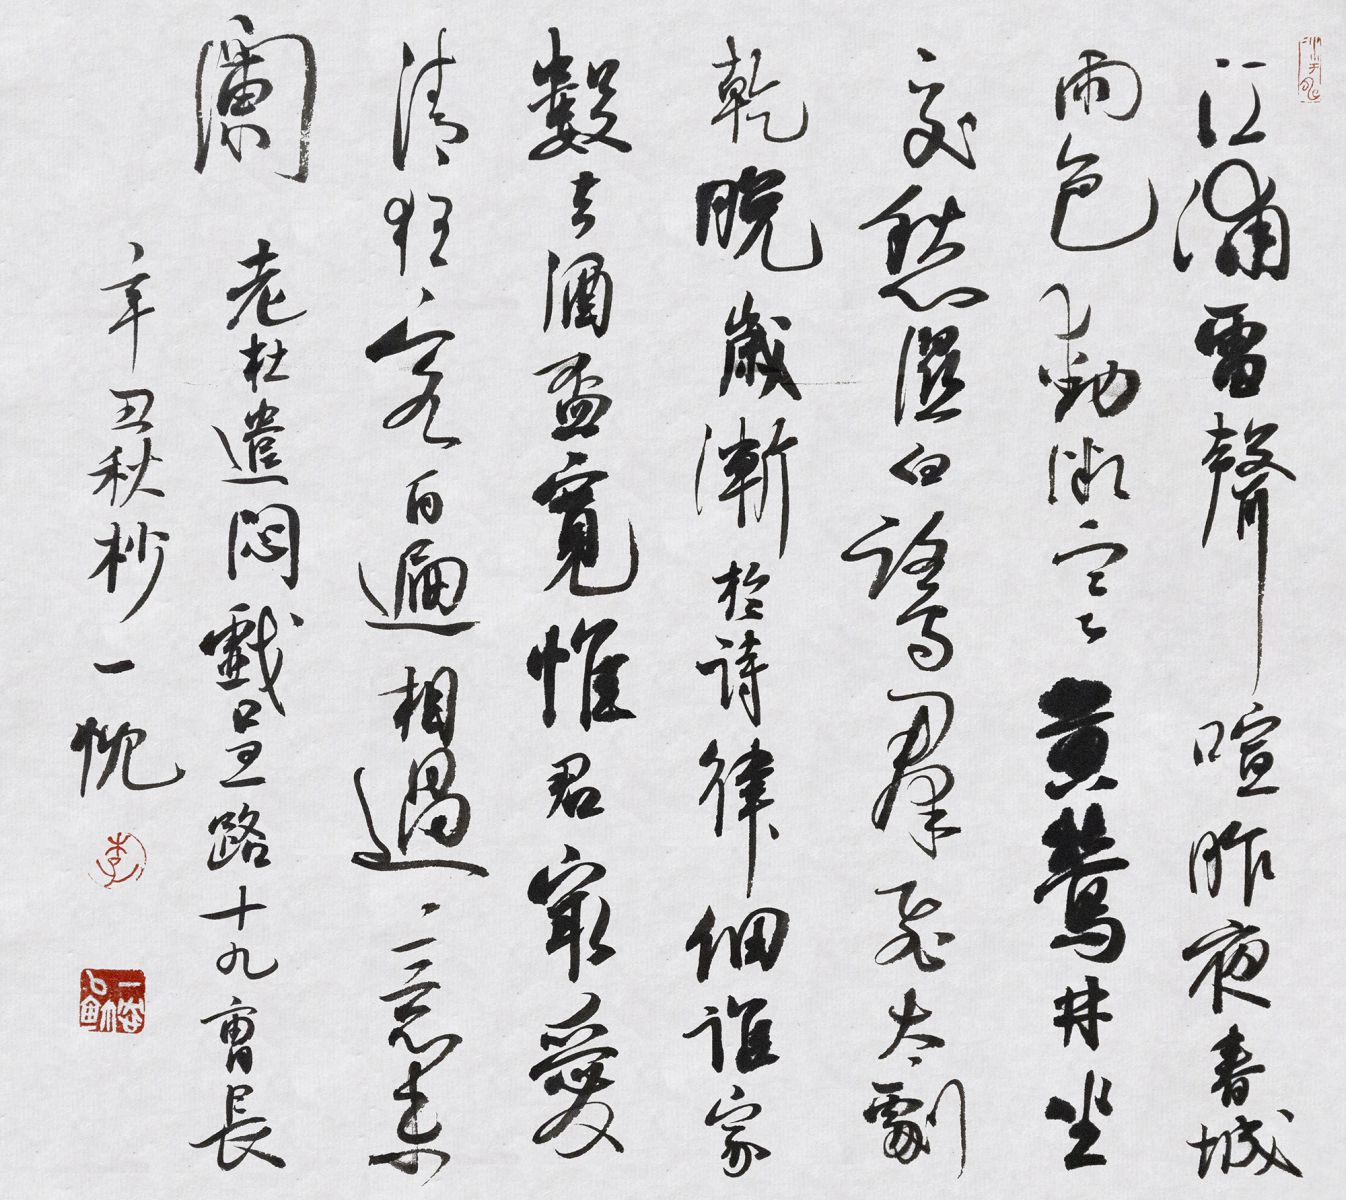 江浦雷聲喧昨夜春城
雨色動微寒黃鶯并坐
交愁濕白鷺羣飛太劇
乾晚歲漸於詩律細誰家
數去酒盃寬惟君最愛
清狂客百遍相過意未
闌 老杜遣悶戲呈路十九曹長
辛丑秋杪一忱
李